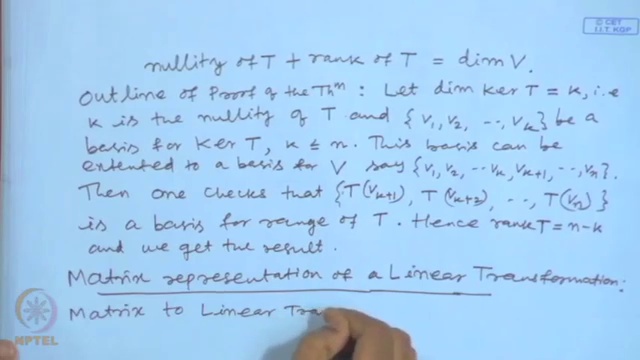 © CET
I.I.T. KGP
nullity of T + rank of T = dim V.
Outline of Proof of the Thᵐ: Let dim ker T = k, i.e
k is the nullity of T and {v₁, v₂, ..., vₖ} be a
basis for Ker T, k ≤ n. This basis can be
extented to a basis for V say {v₁, v₂, ... vₖ, vₖ₊₁, ..., vₙ}.
Then one checks that {T(vₖ₊₁), T(vₖ₊₂), ..., T(vₙ)}
is a basis for range of T. Hence rank T = n-k
and we get the result.
Matrix representation of a Linear Transformation:
Matrix to Linear Tra
NPTEL